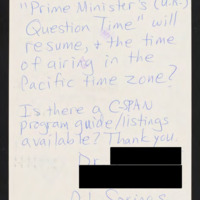 "Prime Minister's (U.K.)
Question Time" will
resume, & the time
of airing in the
Pacific time zone?
Is there a C-SPAN
program guide/listings
available? Thank you.
Dr.
Springs